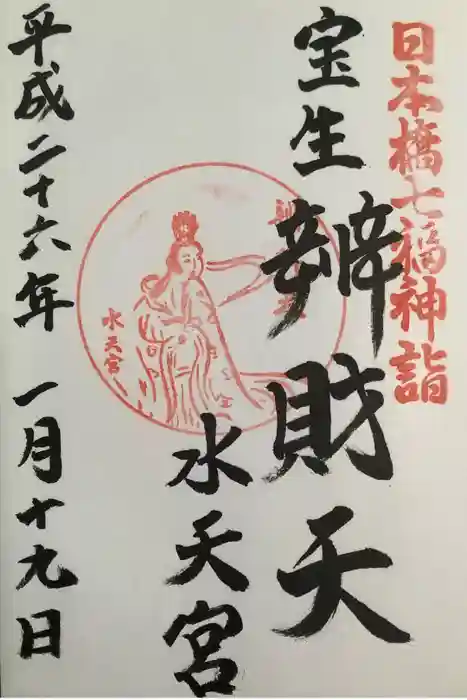 日本橋七福神詣
宝生辨財天
水天宮
水天宮
平成二十六年一月十九日